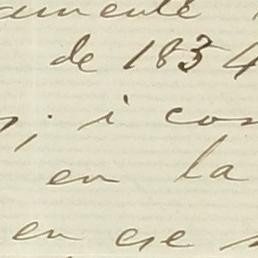 amente
de 1834
; i con
en la
en ese